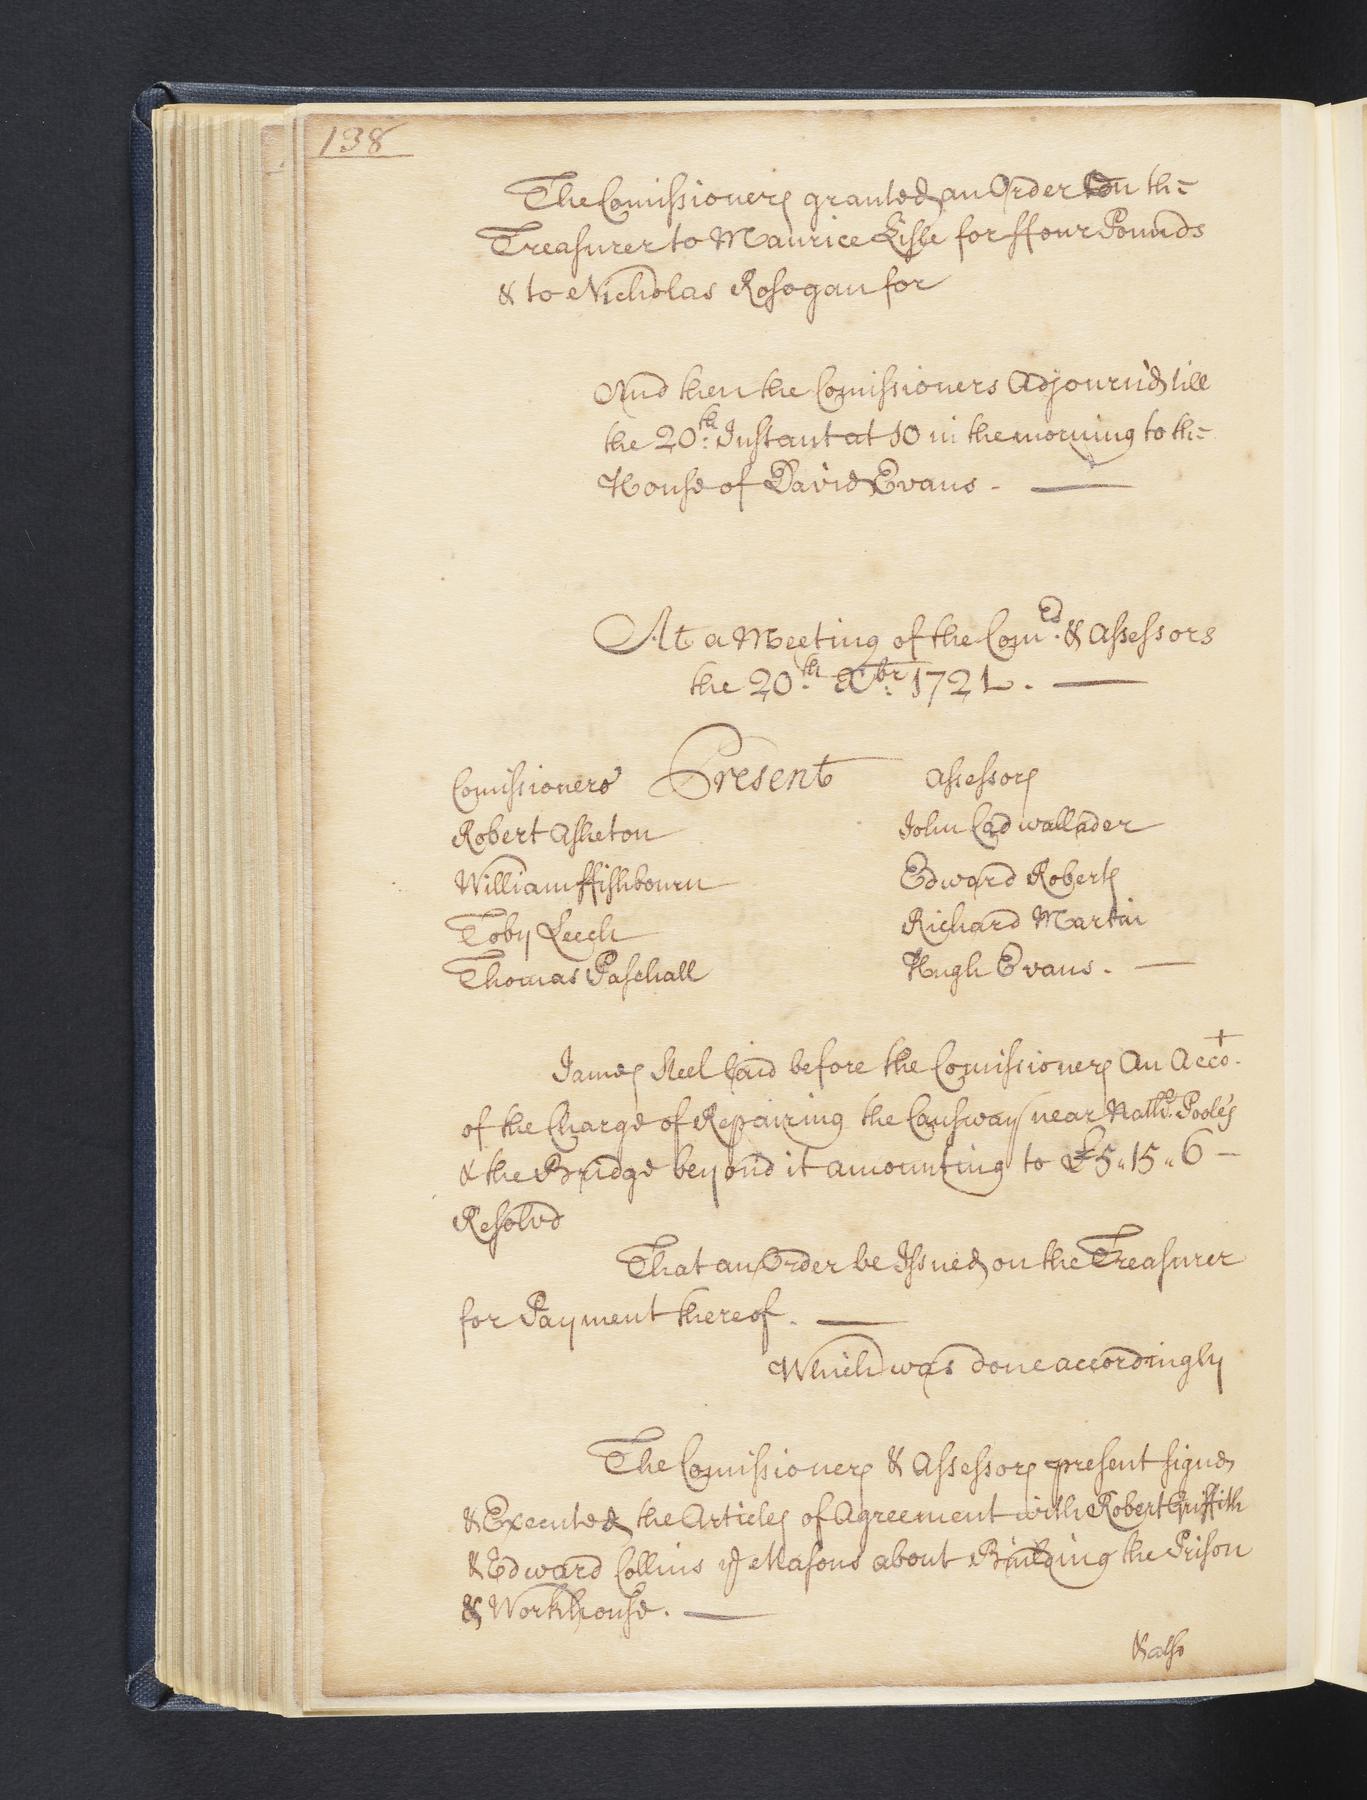 138
The Comissioners granted an Order on the
Treasurer to Maurice Lisle for ffour Pounds
& to Nicholas Rosogan for
And then the Comissioners Adjourn'd till
the 20th. Instant at 10 in the morning to the
House of David Evans - —
At a Meeting of the Com rs. & Assessors
the 20th. Xbr. 1721. —
Comissioners Present Assessors
Robert Asheton John Cadwallader
William ffishbourn Edward Roberts
Toby Leech Richard Martin
Thomas Paschall Hugh Evans. —
James Steel laid before the Comissioners An Acco t.
of the Charge of Repairing the Causway near Nathll. Pooles
& the Bridge beyond it amounting to £5„15„6 —
Resolvd
That an Order be Issued on the Treasurer
for Payment thereof. —
Which was done accordingly
The Comissioners & Assessors present signed
& Executed the Articles of Agreement with Robert Griffith
& Edward Collins ye Masons about Building the Prison
& Workhouse. —
& also